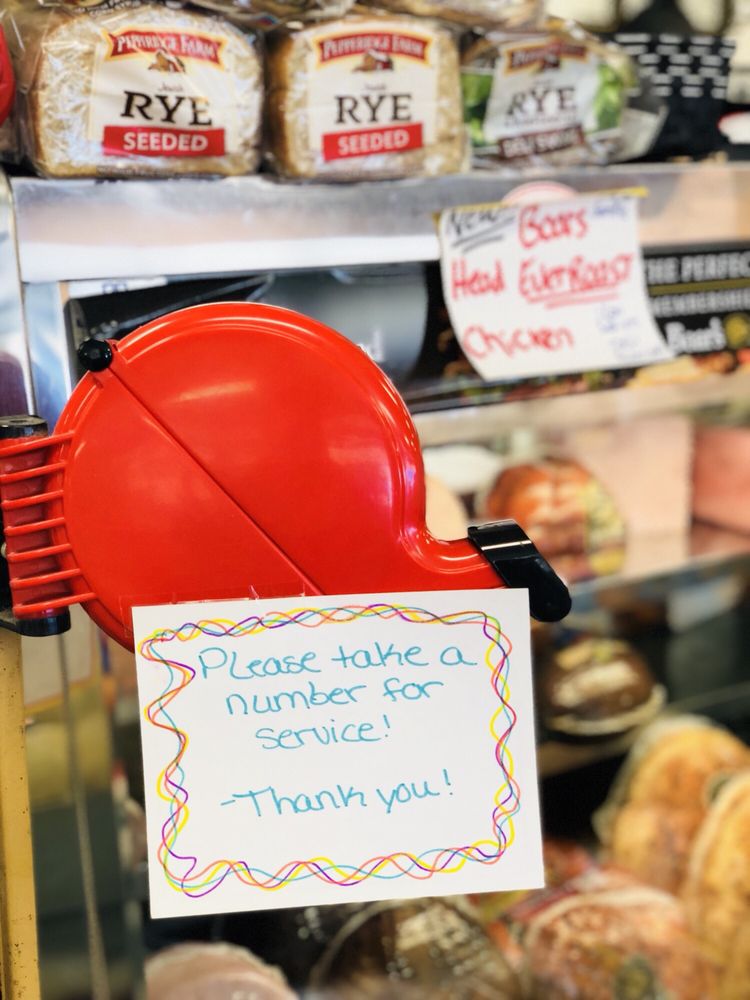 PEPPERIDGE FARM
RYE
SEEDED
PEPPERIDGE FARM
RYE
SEEDED
RYE
NEW Boars
Head EverRoast
Chicken
THE PERFEC
Boar's
Please take a
number for
service!
-Thank you!